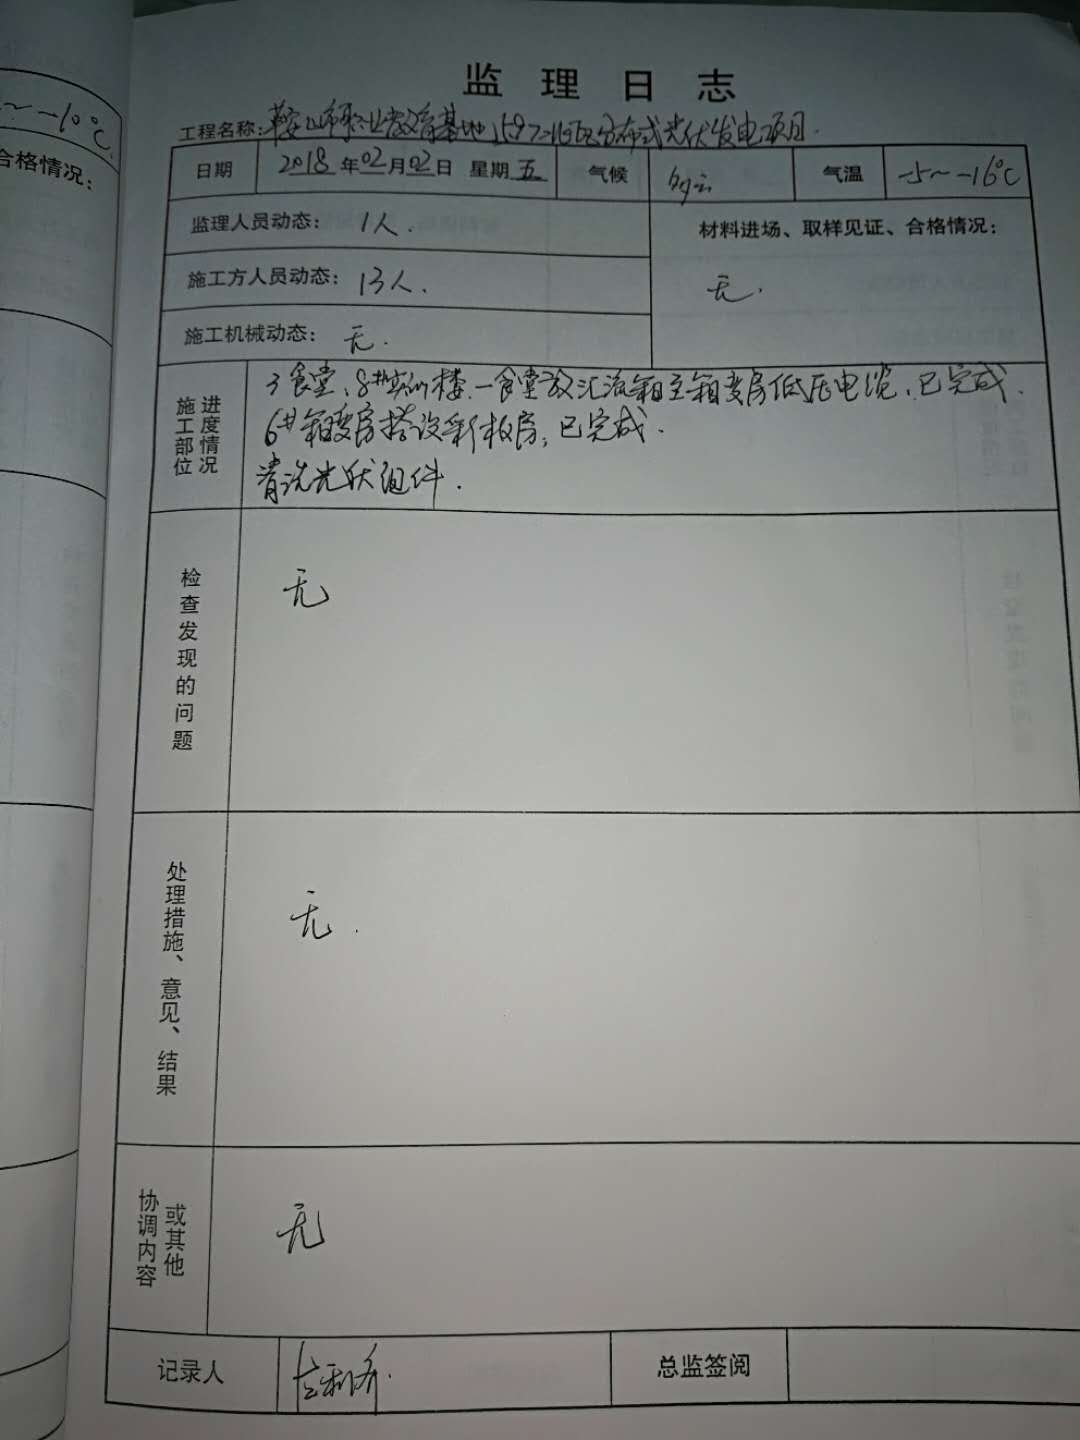 ~-10℃
合格情况:
监理日志
工程名称: 鞍山市职业教育基地 分布式光伏发电项目.
日期 2018年02月02日 星期五 气候 气温 -5~-16℃
监理人员动态: 1人.
材料进场、取样见证、合格情况:
无.
施工方人员动态: 13人.
施工机械动态: 无.
施工部位进度情况
3食堂、8#实训楼、一食堂放汇流箱至箱变房低压电缆,已完成.
6#箱变房搭设彩板房,已完成.
清洗光伏组件.
检查发现的问题
无
处理措施、意见、结果
无.
协调内容或其他
无
记录人 总监签阅